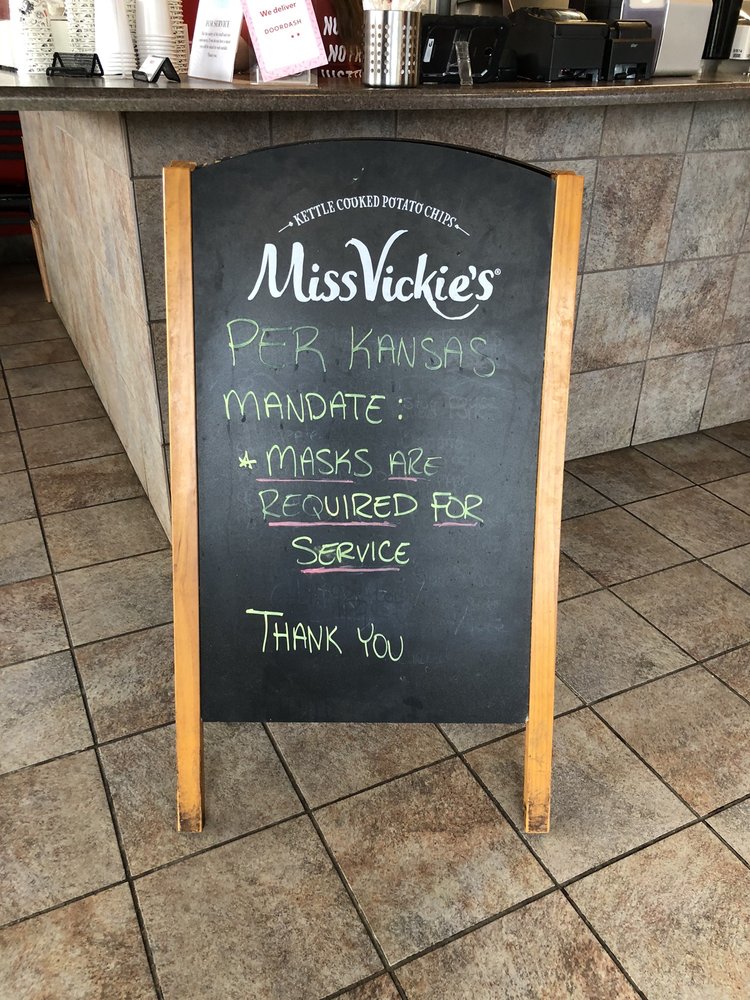 We deliver
DOORDASH
KETTLE COOKED POTATO CHIPS
Miss Vickie's®
PER KANSAS
MANDATE:
* MASKS ARE
REQUIRED FOR
SERVICE
THANK YOU